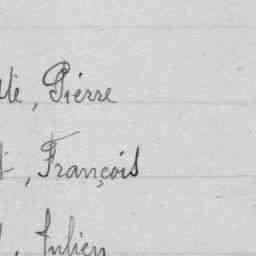 té, Pierre
t, François
t, Julien